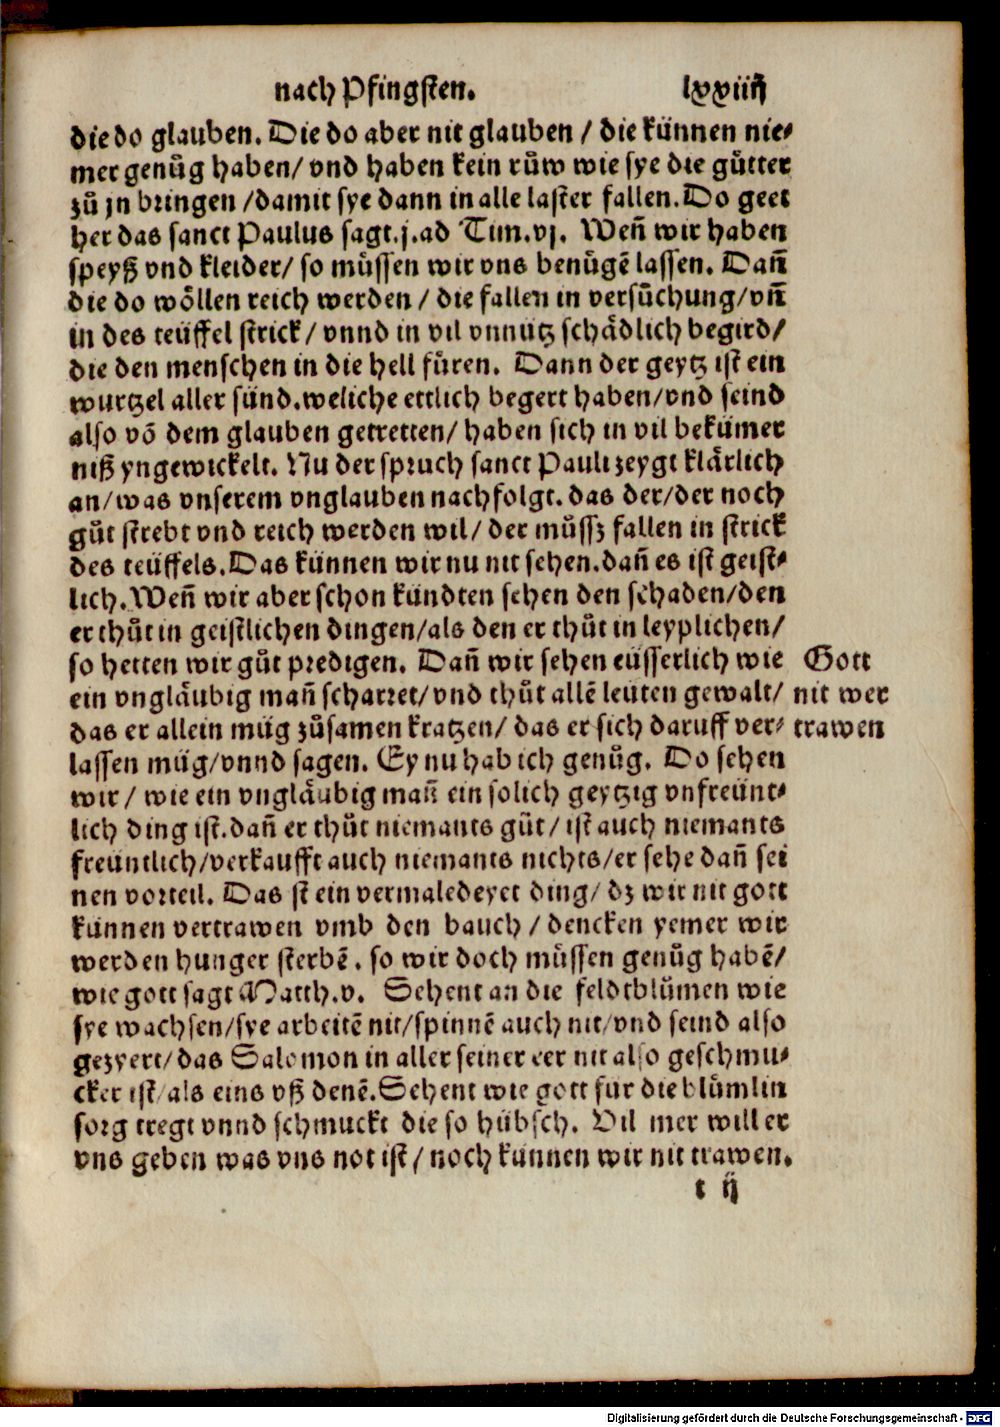 nach Pfingsten. lxxiiij
die do glauben. Die do aber nit glauben / die künnen nie⸗
mer genůg haben/ vnd haben kein růw wie sye die gůtter
zů jn bringen /damit sye dann in alle laster fallen. Do geet
her das sanct Paulus sagt.j.ad Tim.vj. Weñ wir haben
speyß vnd kleider/ so můssen wir vns benůgē lassen. Dañ
die do wöllen reich werden / die fallen in versůchung/vñ
in des teüffel strick/ vnnd in vil vnnütz schädlich begird/
die den menschen in die hell füren. Dann der geytz ist ein
wurtzel aller sünd.weliche ettlich begert haben/vnd seind
also vō dem glauben getretten/ haben sich in vil bekümer
niß yngewickelt. Nu der spruch sanct Pauli zeygt klärlich
an/was vnserem vnglauben nachfolgt. das der/der noch
gůt strebt vnd reich werden wil/ der můssz fallen in strick
des teüffels. Das künnen wir nu nit sehen.dañ es ist geist⸗
lich. Weñ wir aber schon kündten sehen den schaden/den
er thůt in geistlichen dingen/als den er thůt in leyplichen/
so hetten wir gůt predigen. Dañ wir sehen eüsserlich wie
ein vngläubig mañ scharret/vnd thůt allē leüten gewalt/
das er allein müg zůsamen kratzen/ das er sich daruff ver⸗
lassen müg/vnnd sagen. Ey nu hab ich genůg. Do sehen
wir / wie ein vngläubig mañ ein solich geytzig vnfreünt⸗
lich ding ist.dañ er thůt niemants gůt/ ist auch niemants
freüntlich/verkaufft auch niemants nichts/er sehe dañ sei
nen vorteil. Das st ein vermaledeyet ding/ dz wir nit gott
künnen vertrawen vmb den bauch / dencken yemer wir
werden hunger sterbē. so wir doch müssen genůg habē/
wie gott sagt Matth.v. Sehent an die feldtblůmen wie
sye wachsen/sye arbeitē nit/spinnē auch nit/vnd seind also
gezyert/das Salomon in aller seiner eer nit also geschmu⸗
cker ist/als eins vß denē. Sehent wie gott für die blůmlin
sorg tregt vnnd schmuckt die so hübsch. Vil mer will er
vns geben was vns not ist/ noch künnen wir nit trawen.
t ij
Gott
nit wer
trawen
Digitalisierung gefördert durch die Deutsche Forschungsgemeinschaft - DFG